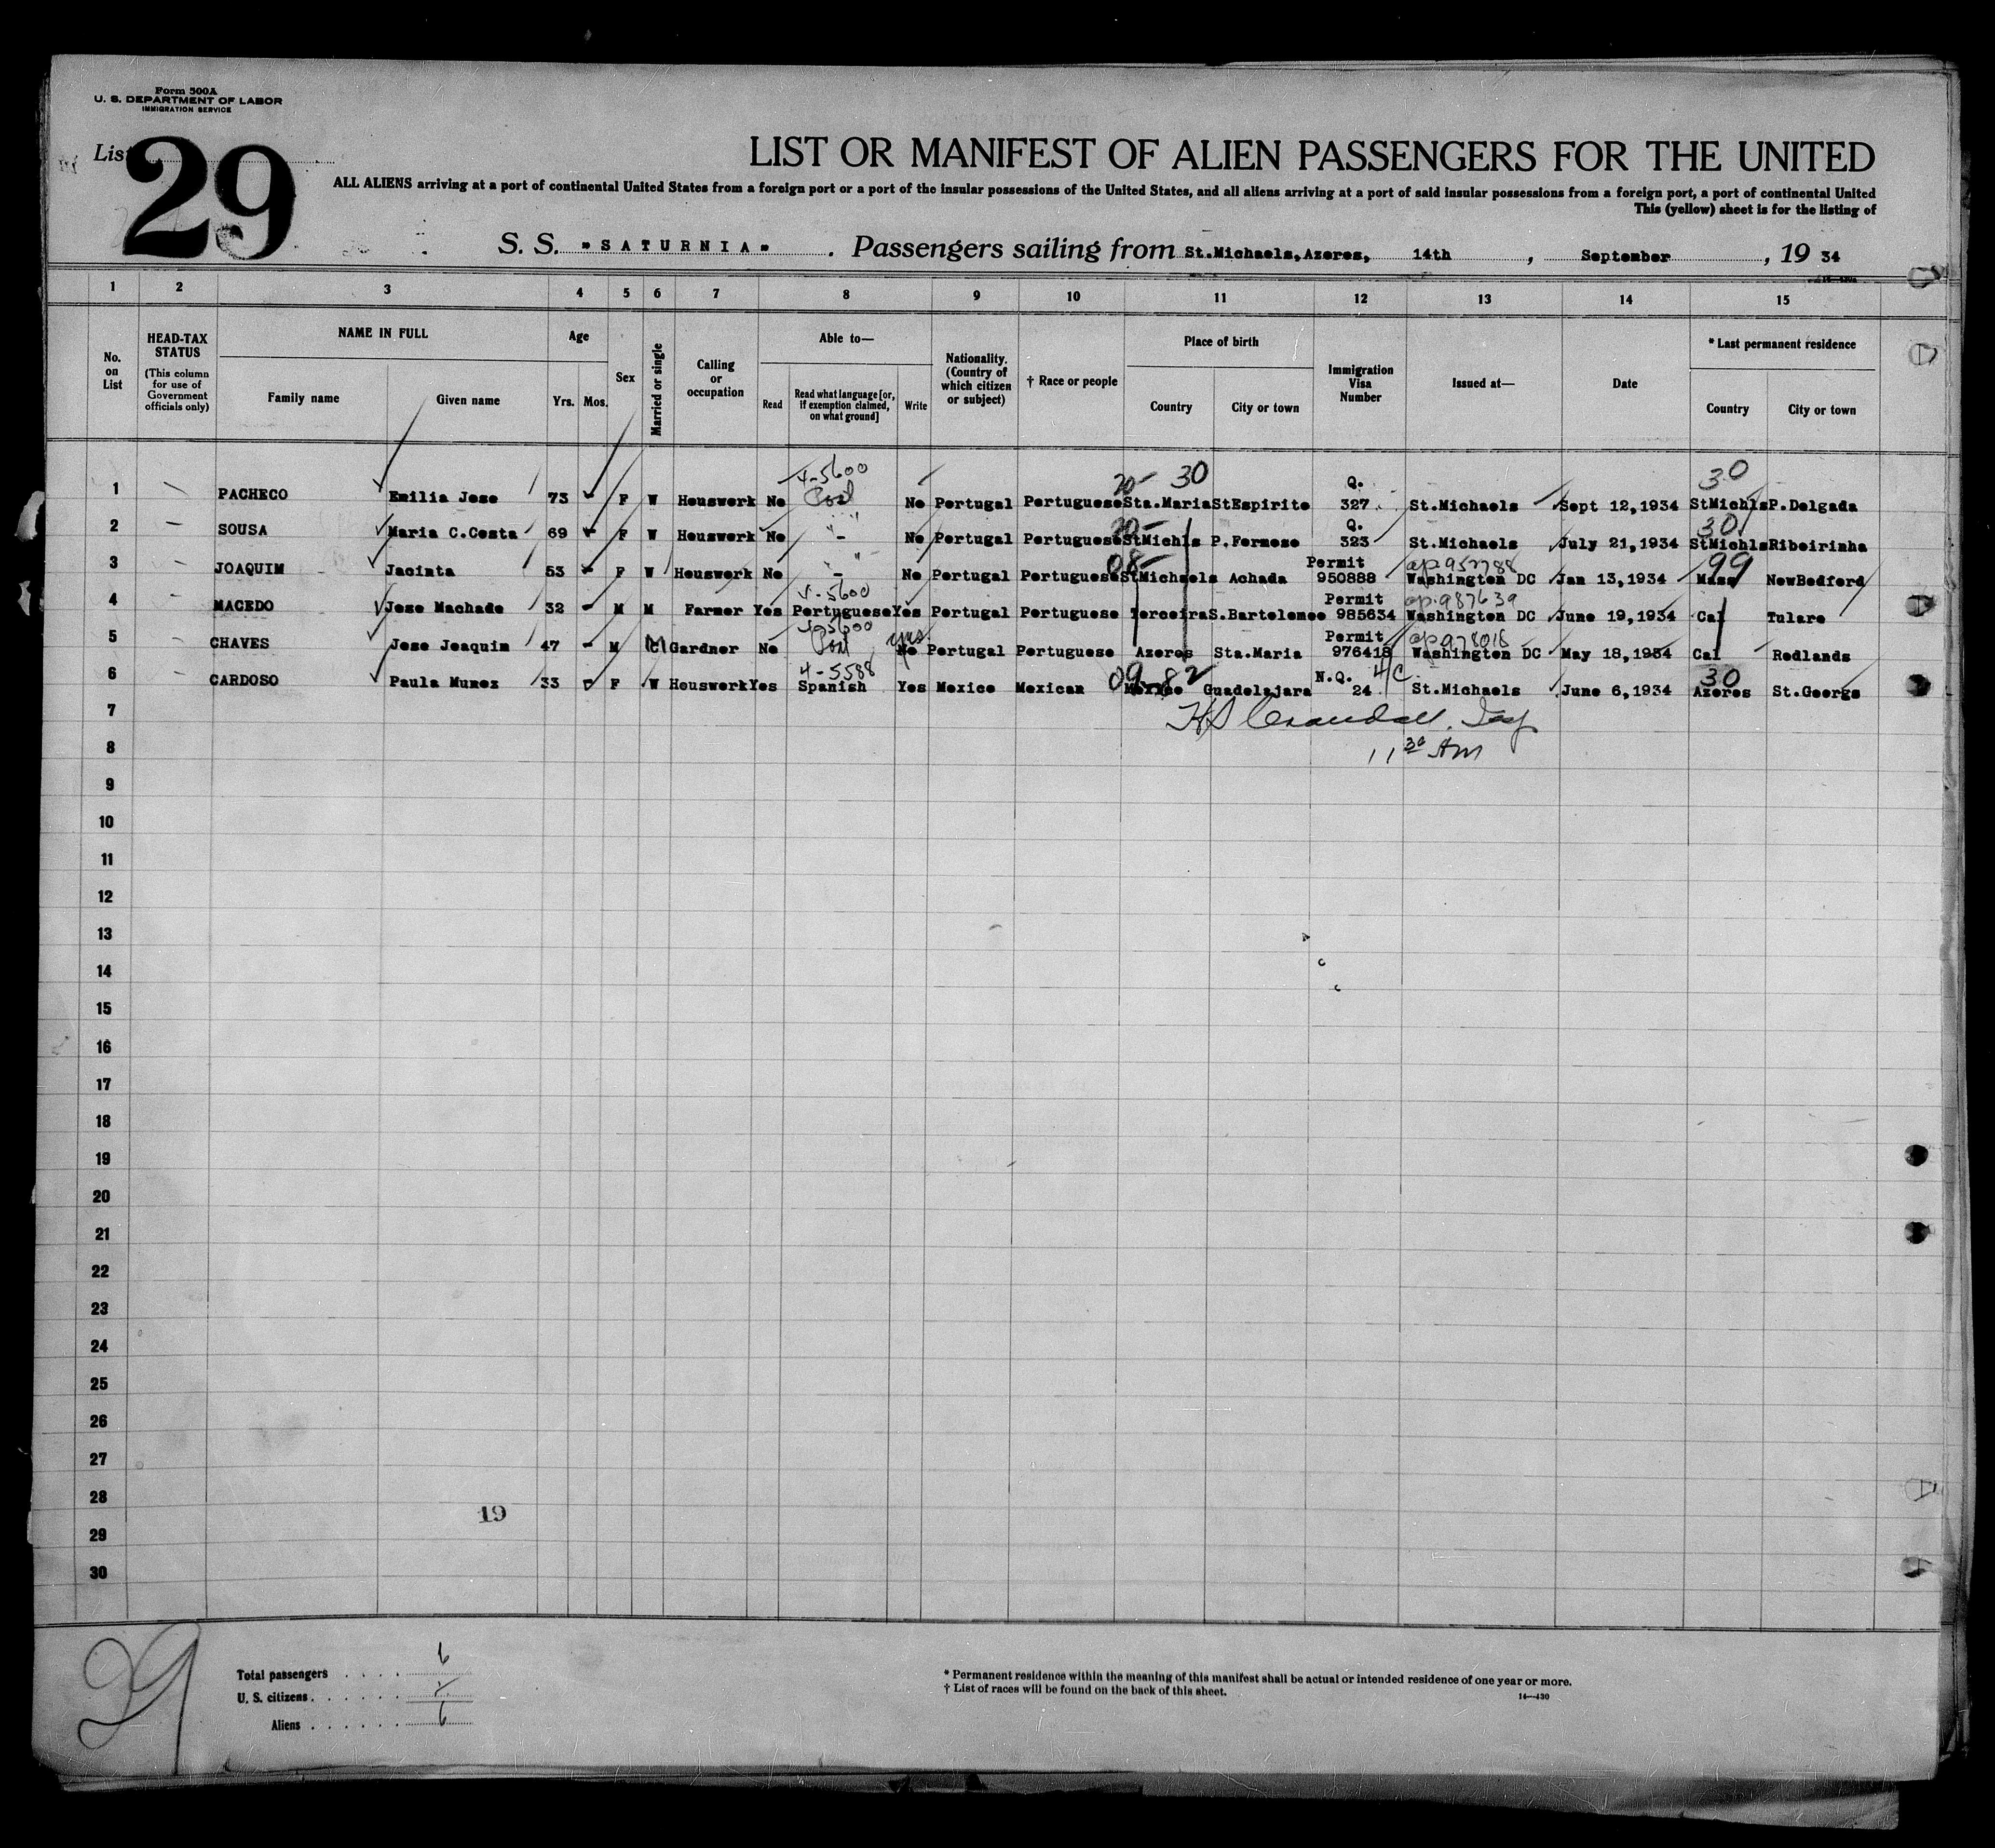 Form 500A
U. S. DEPARTMENT OF LABOR
IMMIGRATION SERVICE
List 29
LIST OR MANIFEST OF ALIEN PASSENGERS FOR THE UNITED
ALL ALIENS arriving at a port of continental United States from a foreign port or a port of the insular possessions of the United States, and all aliens arriving at a port of said insular possessions from a foreign port, a port of continental United
This (yellow) sheet is for the listing of
S. S. "SATURNIA". Passengers sailing from St.Michaels,Azores, 14th, September, 19 34
1 2 3 4 5 6 7 8 9 10 11 12 13 14 15
No. on List
HEAD-TAX STATUS
(This column for use of Government officials only)
NAME IN FULL
Family name
Given name
Age
Yrs. Mos.
Sex
Married or single
Calling or occupation
Able to—
Read
Read what language [or, if exemption claimed, on what ground]
Write
Nationality. (Country of which citizen or subject)
† Race or people
Place of birth
Country
City or town
Immigration Visa Number
Issued at—
Date
* Last permanent residence
Country
City or town
4-5600 20- 30 Q. 30
1 – PACHECO Emilia Jose 73 - F W Houswork No No Portugal Portuguese Sta.Maria StEspirito 327 St.Michaels Sept 12,1934 StMichls P.Delgada
20- Q. 30
2 – SOUSA Maria C.Costa 69 - F W Houswork No - No Portugal Portuguese StMichls P.Formoso 323 St.Michaels July 21,1934 StMichls Ribeirinha
08- Permit ap.952788 99
3 – JOAQUIM Jacinta 53 - F W Houswork No - No Portugal Portuguese StMichaels Achada 950888 Washington DC Jan 13,1934 Mass NewBedford
5600 Permit ap.987639
4 – MACEDO Jose Machado 32 - M M Farmer Yes Portuguese Yes Portugal Portuguese Terceira S.Bartolomeo 985634 Washington DC June 19,1934 Cal Tulare
5600 yes Permit
5 – CHAVES Jose Joaquim 47 - M M Gardner No No Portugal Portuguese Azores Sta.Maria 976418 Washington DC May 18,1934 Cal Redlands
4-5588 09-82 N.Q. 4C 30
6 – CARDOSO Paula Munoz 33 F W Houswork Yes Spanish Yes Mexico Mexican Mexico Guadelajara 24 St.Michaels June 6,1934 Azores St.George
7 HS Crandall. Insp
8 11 30 AM
9
10
11
12
13
14
15
16
17
18
19
20
21
22
23
24
25
26
27
28 19
29
30
29
Total passengers 6
U. S. citizens
Aliens 6
* Permanent residence within the meaning of this manifest shall be actual or intended residence of one year or more.
† List of races will be found on the back of this sheet.
14—430